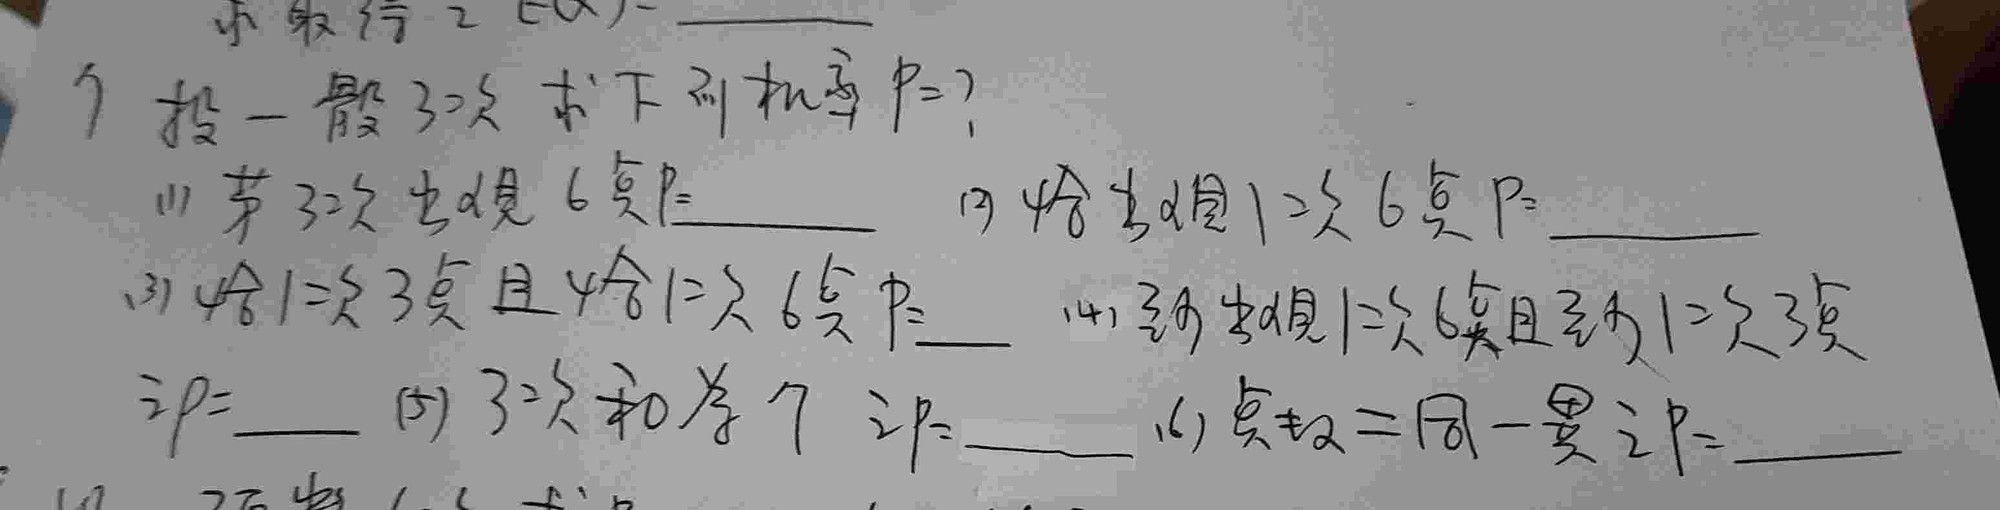 求取得之E(X)=
7 投一骰3次 求下列机率P=?
(1) 第3次出现6点P= (2) 恰出现1次6点P=
(3) 恰1次3点且恰1次6点P= (4) 至少出现1次6点且至少1次3点
之P= (5) 3次和为7之P= (6) 点数二同一異之P=